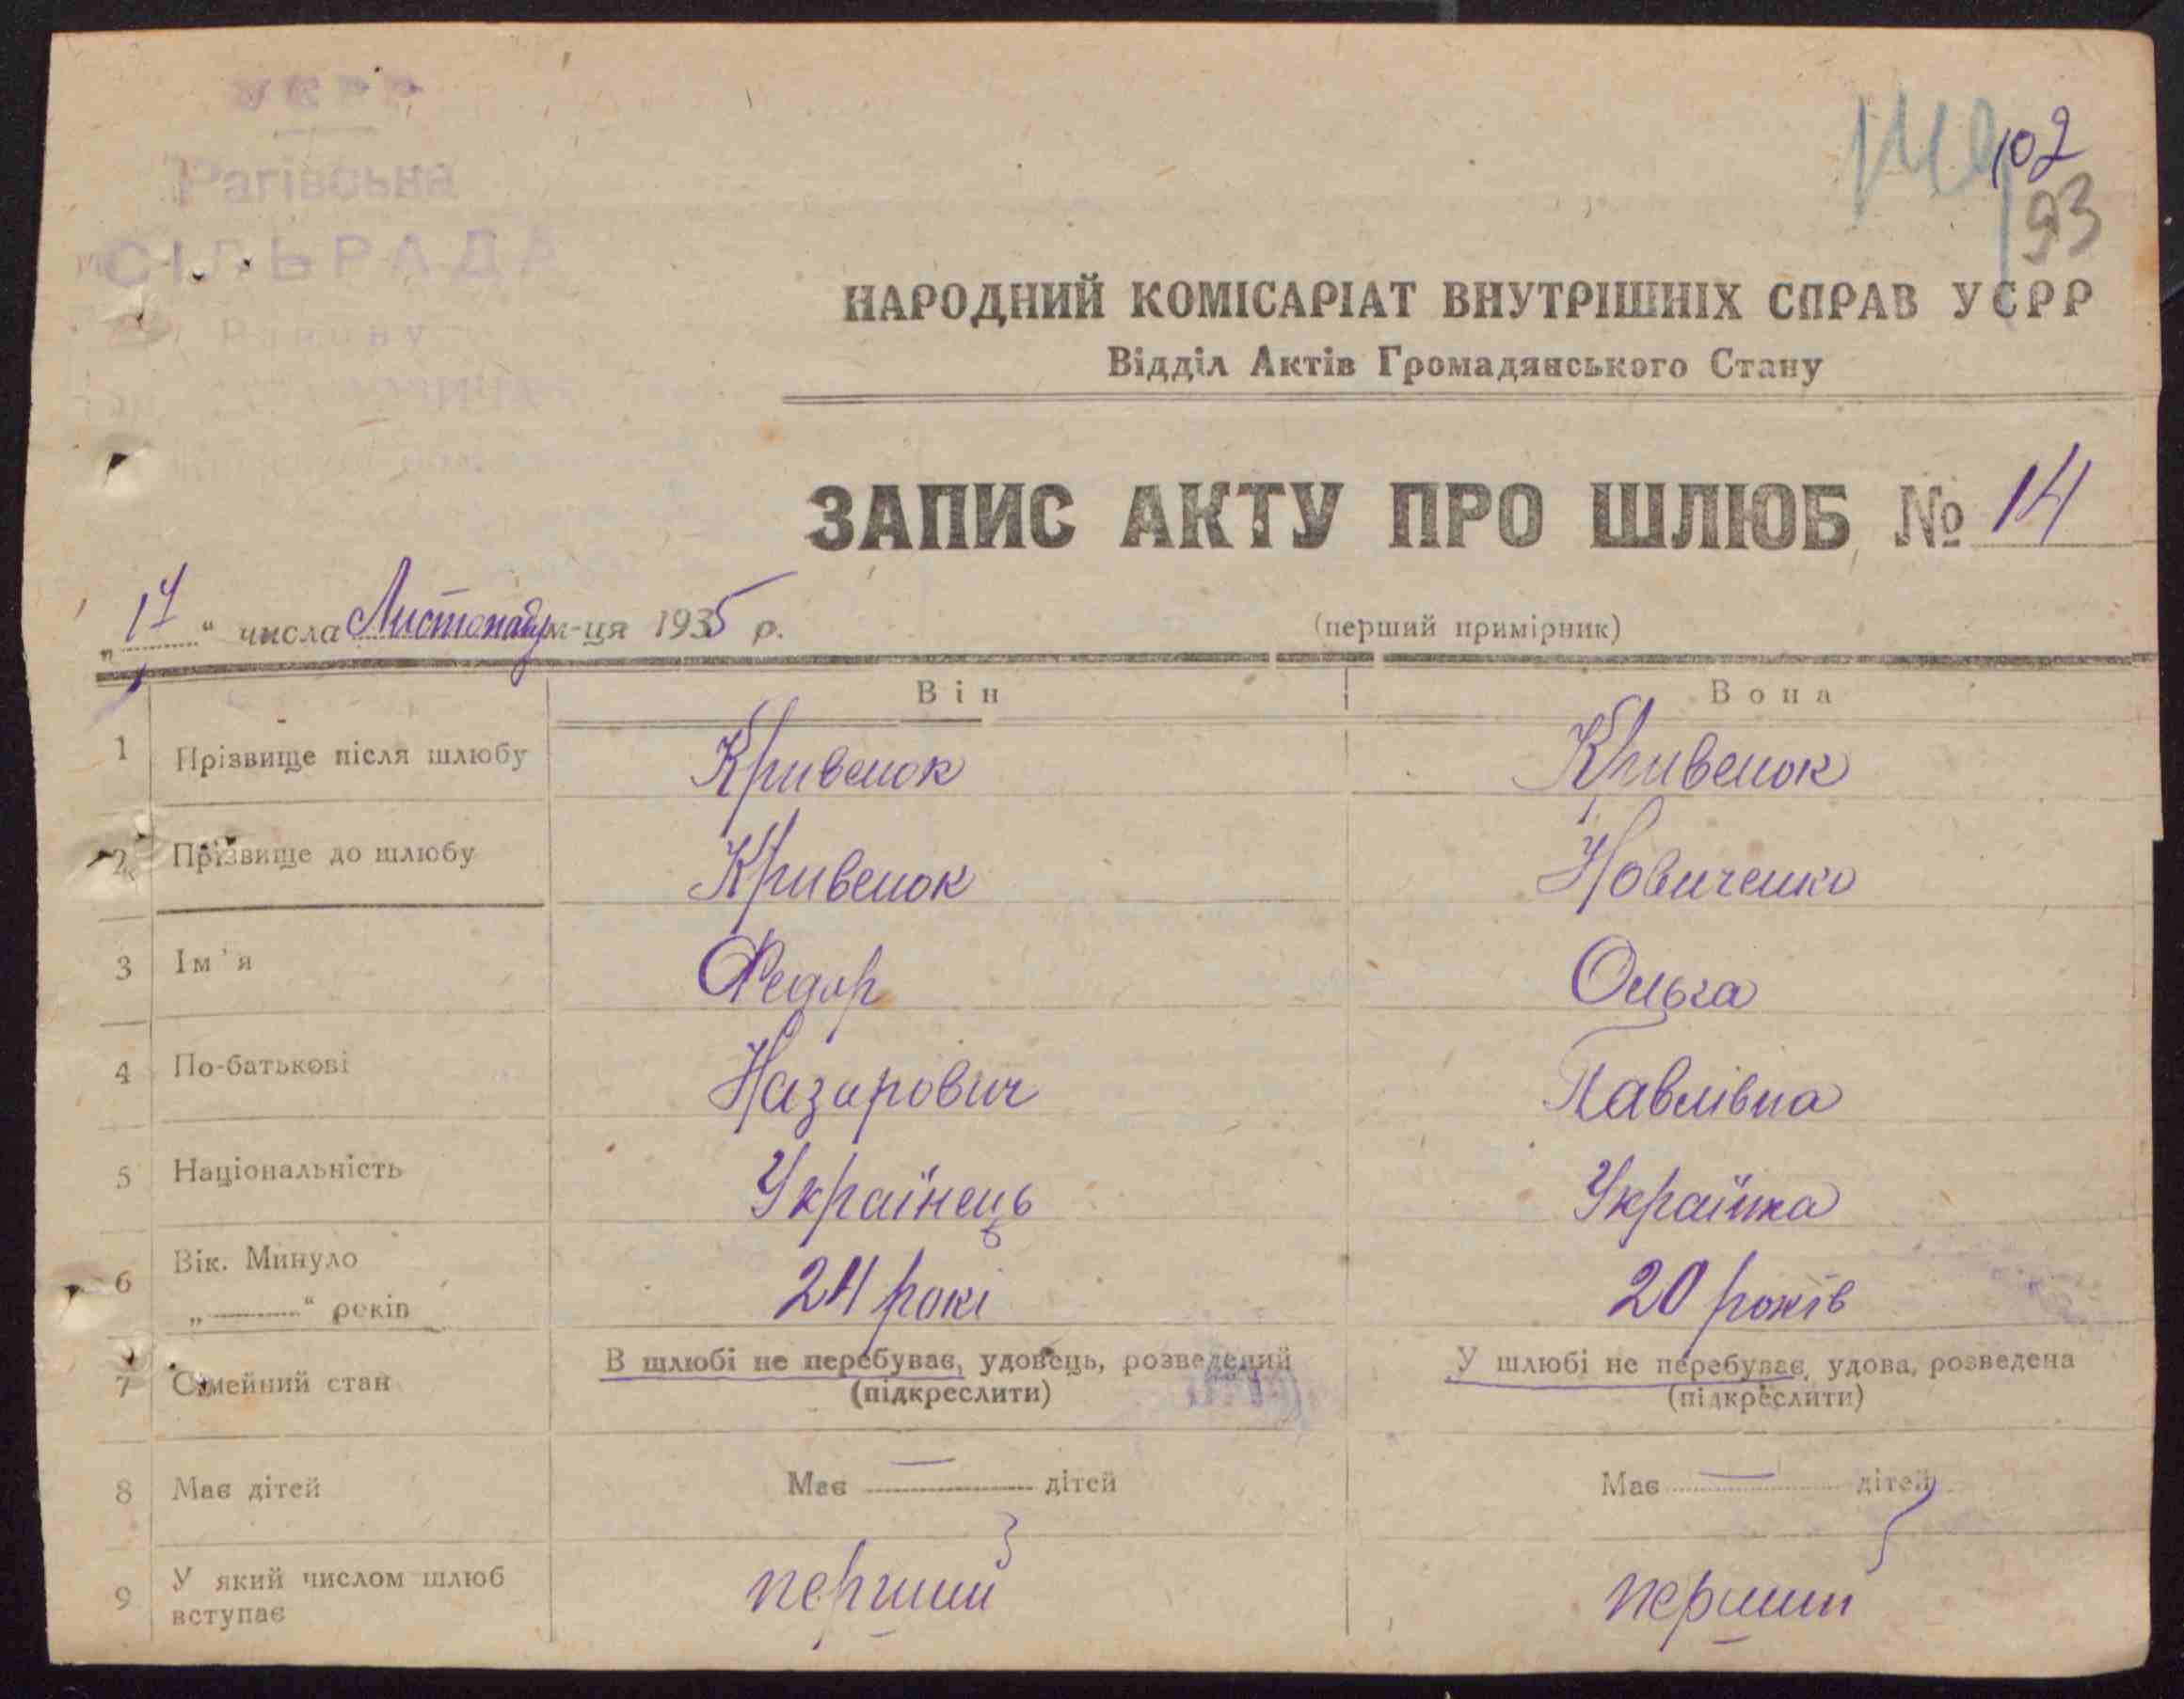 УСРР
Рагівська
СІЛЬРАДА
Району
102
93
НАРОДНИЙ КОМІСАРІАТ ВНУТРІШНІХ СПРАВ УСРР
Відділ Актів Громадянського Стану
ЗАПИС АКТУ ПРО ШЛЮБ № 14
„17“ числа Листопаду м-ця 1935 р.
(перший примірник)
Він Вона
1 Прізвище після шлюбу Кривенок Кривенок
2 Прізвище до шлюбу Кривенок Новиченко
3 Ім'я Федор Ольга
4 По-батькові Назарович Павлівна
5 Національність Українець Українка
6 Вік. Минуло
„ “ років 24 рокі 20 років
7 Сімейний стан В шлюбі не перебував, удовець, розведений У шлюбі не перебуває, удова, розведена
(підкреслити) (підкреслити)
8 Має дітей Має — дітей Має — дітей
9 У який числом шлюб
вступає перший перший